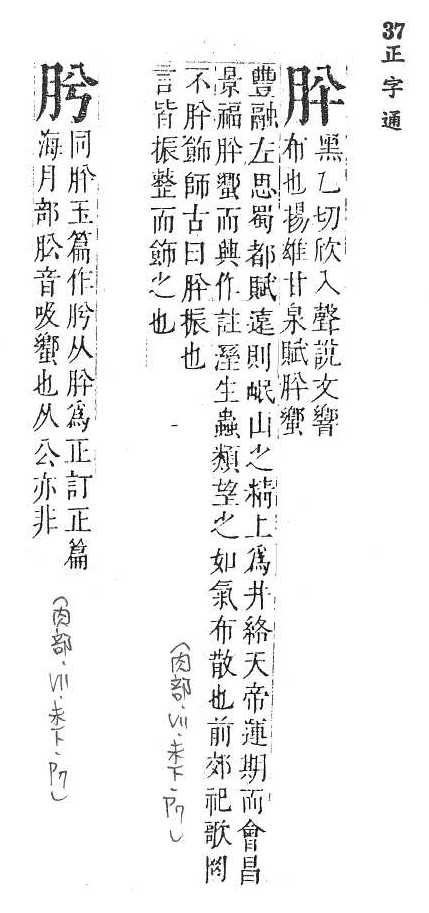 37正字通
肸
黑乙切欣入聲說文響
布也揚雄甘泉賦肸蠁
豐融左思蜀都賦遠則岷山之精上爲井絡天帝運期而會昌
景福肸蠁而興作註溼生蟲類望之如氣布散也前郊祀歌罔
不肸飾師古曰肸振也
言皆振整而飾之也
(肉部·VII·未下·P7)
肹
同肸玉篇作肹从肸爲正訂正篇
海月部音吸蠁也从公亦非
(肉部·VII·未下·P7)